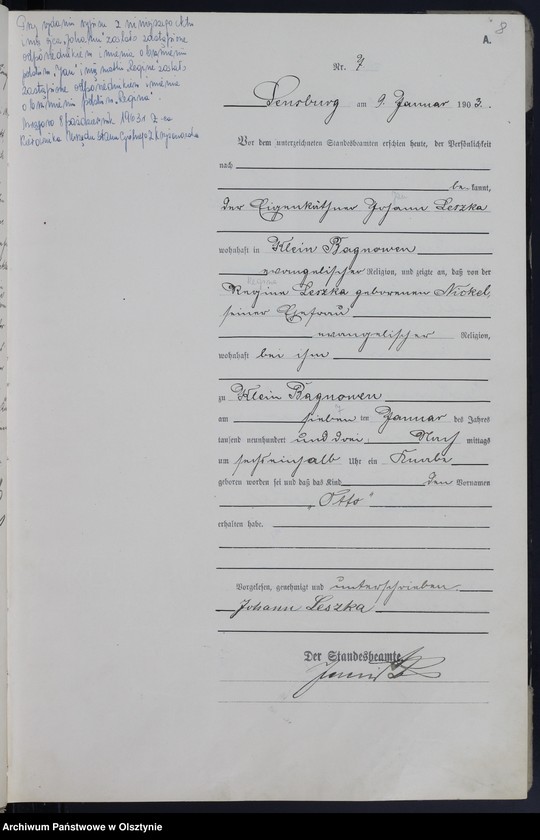 Przy wydaniu wypisu z niniejszego aktu
imię ojca „Johann" zostało zastąpione
odpowiednikiem imienia o brzmieniu
polskim „Jan" i imię matki „Regine" zostało
zastąpione odpowiednikiem imienia
o brzmieniu polskim „Regina".
Mrągowo 8 październik 1963 r. Z-ca
Kierownika Urzędu Stanu Cywilnego
8
A.
Nr. 7
Sensburg am 9. Januar 1903.
Vor dem unterzeichneten Standesbeamten erschien heute, der Persönlichkeit
nach
be kannt,
Jan
der Eigenkäthner Johann Leszka
wohnhaft in Klein Bagnowen
evangelischer Religion, und zeigte an, daß von der
Regina
Regine Leszka geborenen Nickel,
seiner Ehefrau
evangelischer Religion,
wohnhaft bei ihm
zu Klein Bagnowen
am sieben ten Januar des Jahres
tausend neunhundert und drei, Nach mittags
um sechseinhalb Uhr ein Knabe
geboren worden sei und daß das Kind den Vornamen
„Otto"
erhalten habe.
Vorgelesen, genehmigt und unterschrieben
Johann Leszka
Der Standesbeamte.
Archiwum Państwowe w Olsztynie